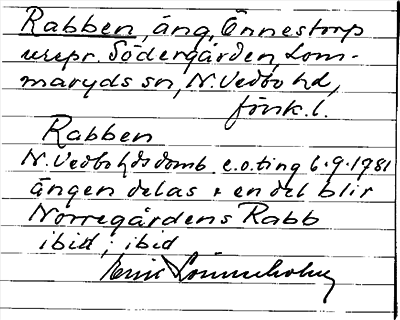 Rabben, äng, Önnestorp
urspr. Södergården, Lom-
maryds sn, N. Vedbo hd,
fönk. l.
Rabben
N. Vedbo hds domb. e.o. ting 6.9.1781
ängen delas & en del blir
Norregårdens Rabb
ibid; ibid